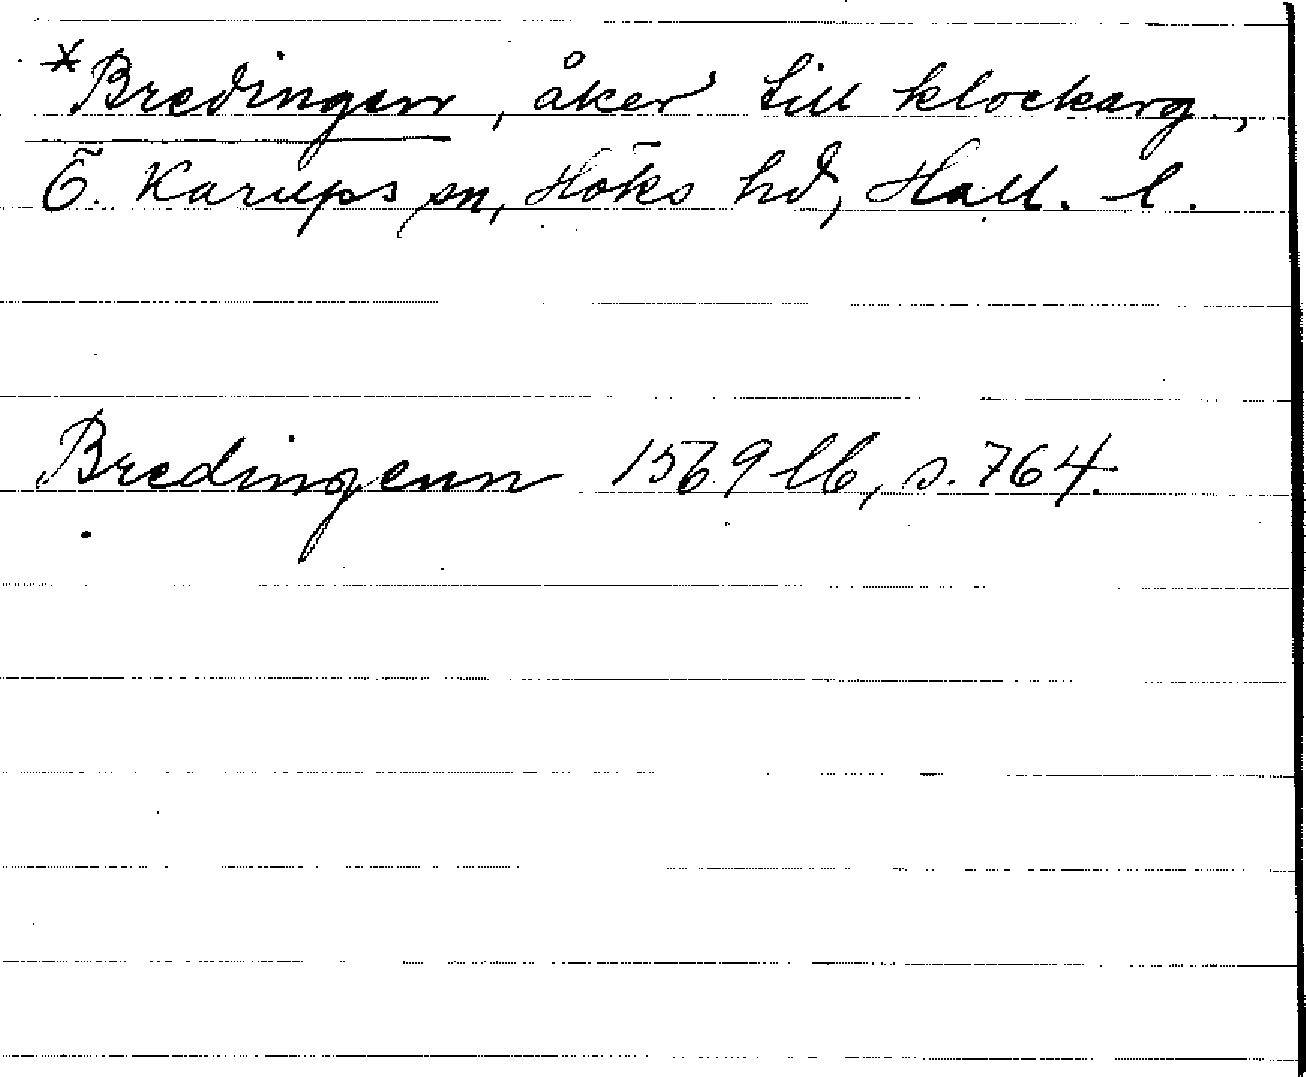 *Bredingen, åker till klockarg.,
Ö. Karups sn, Höks hd, Hall. l.
Bredingenn 1569 lb, s. 764.